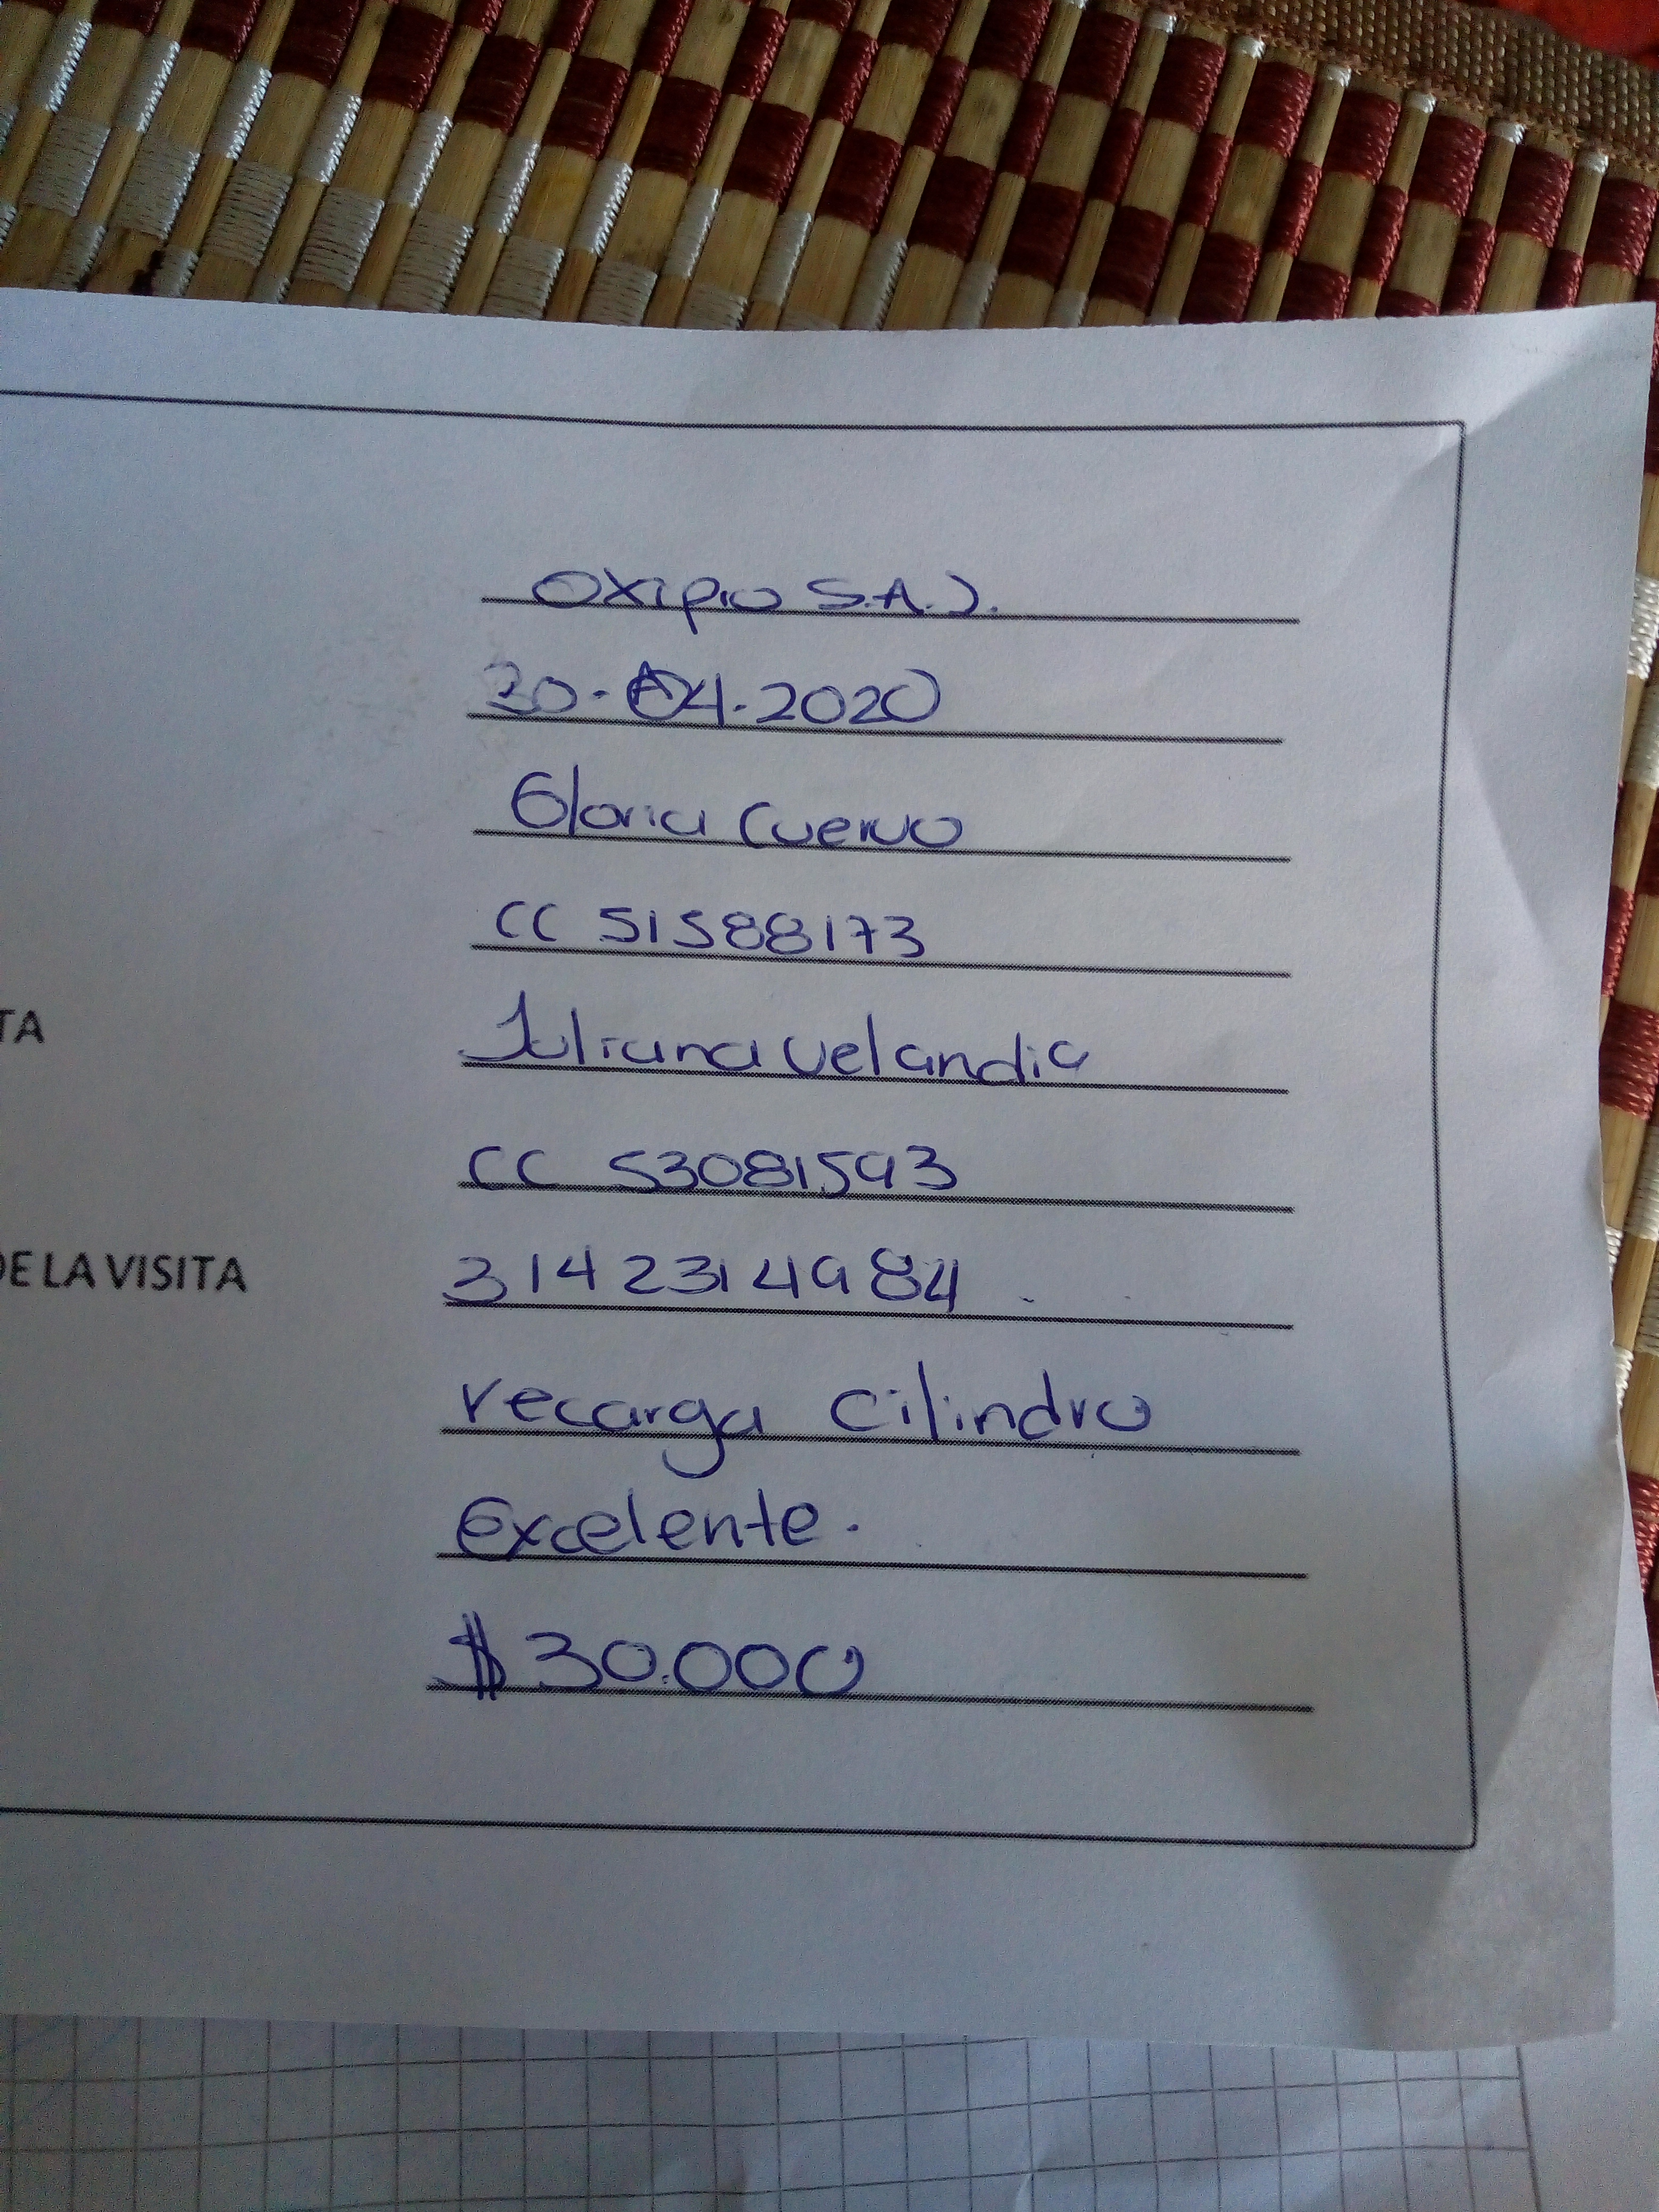 Oxipro S.A.S.
30-04-2020
Gloria Cuervo
CC 51588173
TA
Juliana Velandia
CC 53081593
DE LA VISITA
3142314984
recarga cilindro
Excelente.
$30.000